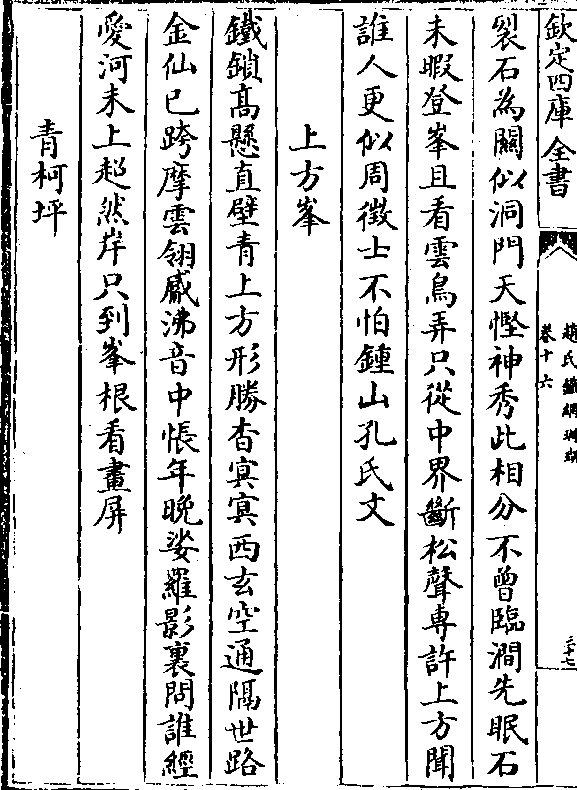 欽定四庫全書
趙氏鐵網珊瑚
卷十六
裂石為關似洞門天慳神秀此相分不曾臨澗先眠石
未暇登峯且看雲鳥弄只從中界斷松聲専許上方聞
誰人更似周徵士不怕鍾山孔氏文
上方峯
鐵鎖髙懸直壁青上方形勝杳冥冥西玄空通隔世路
金仙已跨摩雲翎沸音中悵年晚娑羅影裏問誰經
愛河未上超然岸只到峯根看畫屏
青柯坪